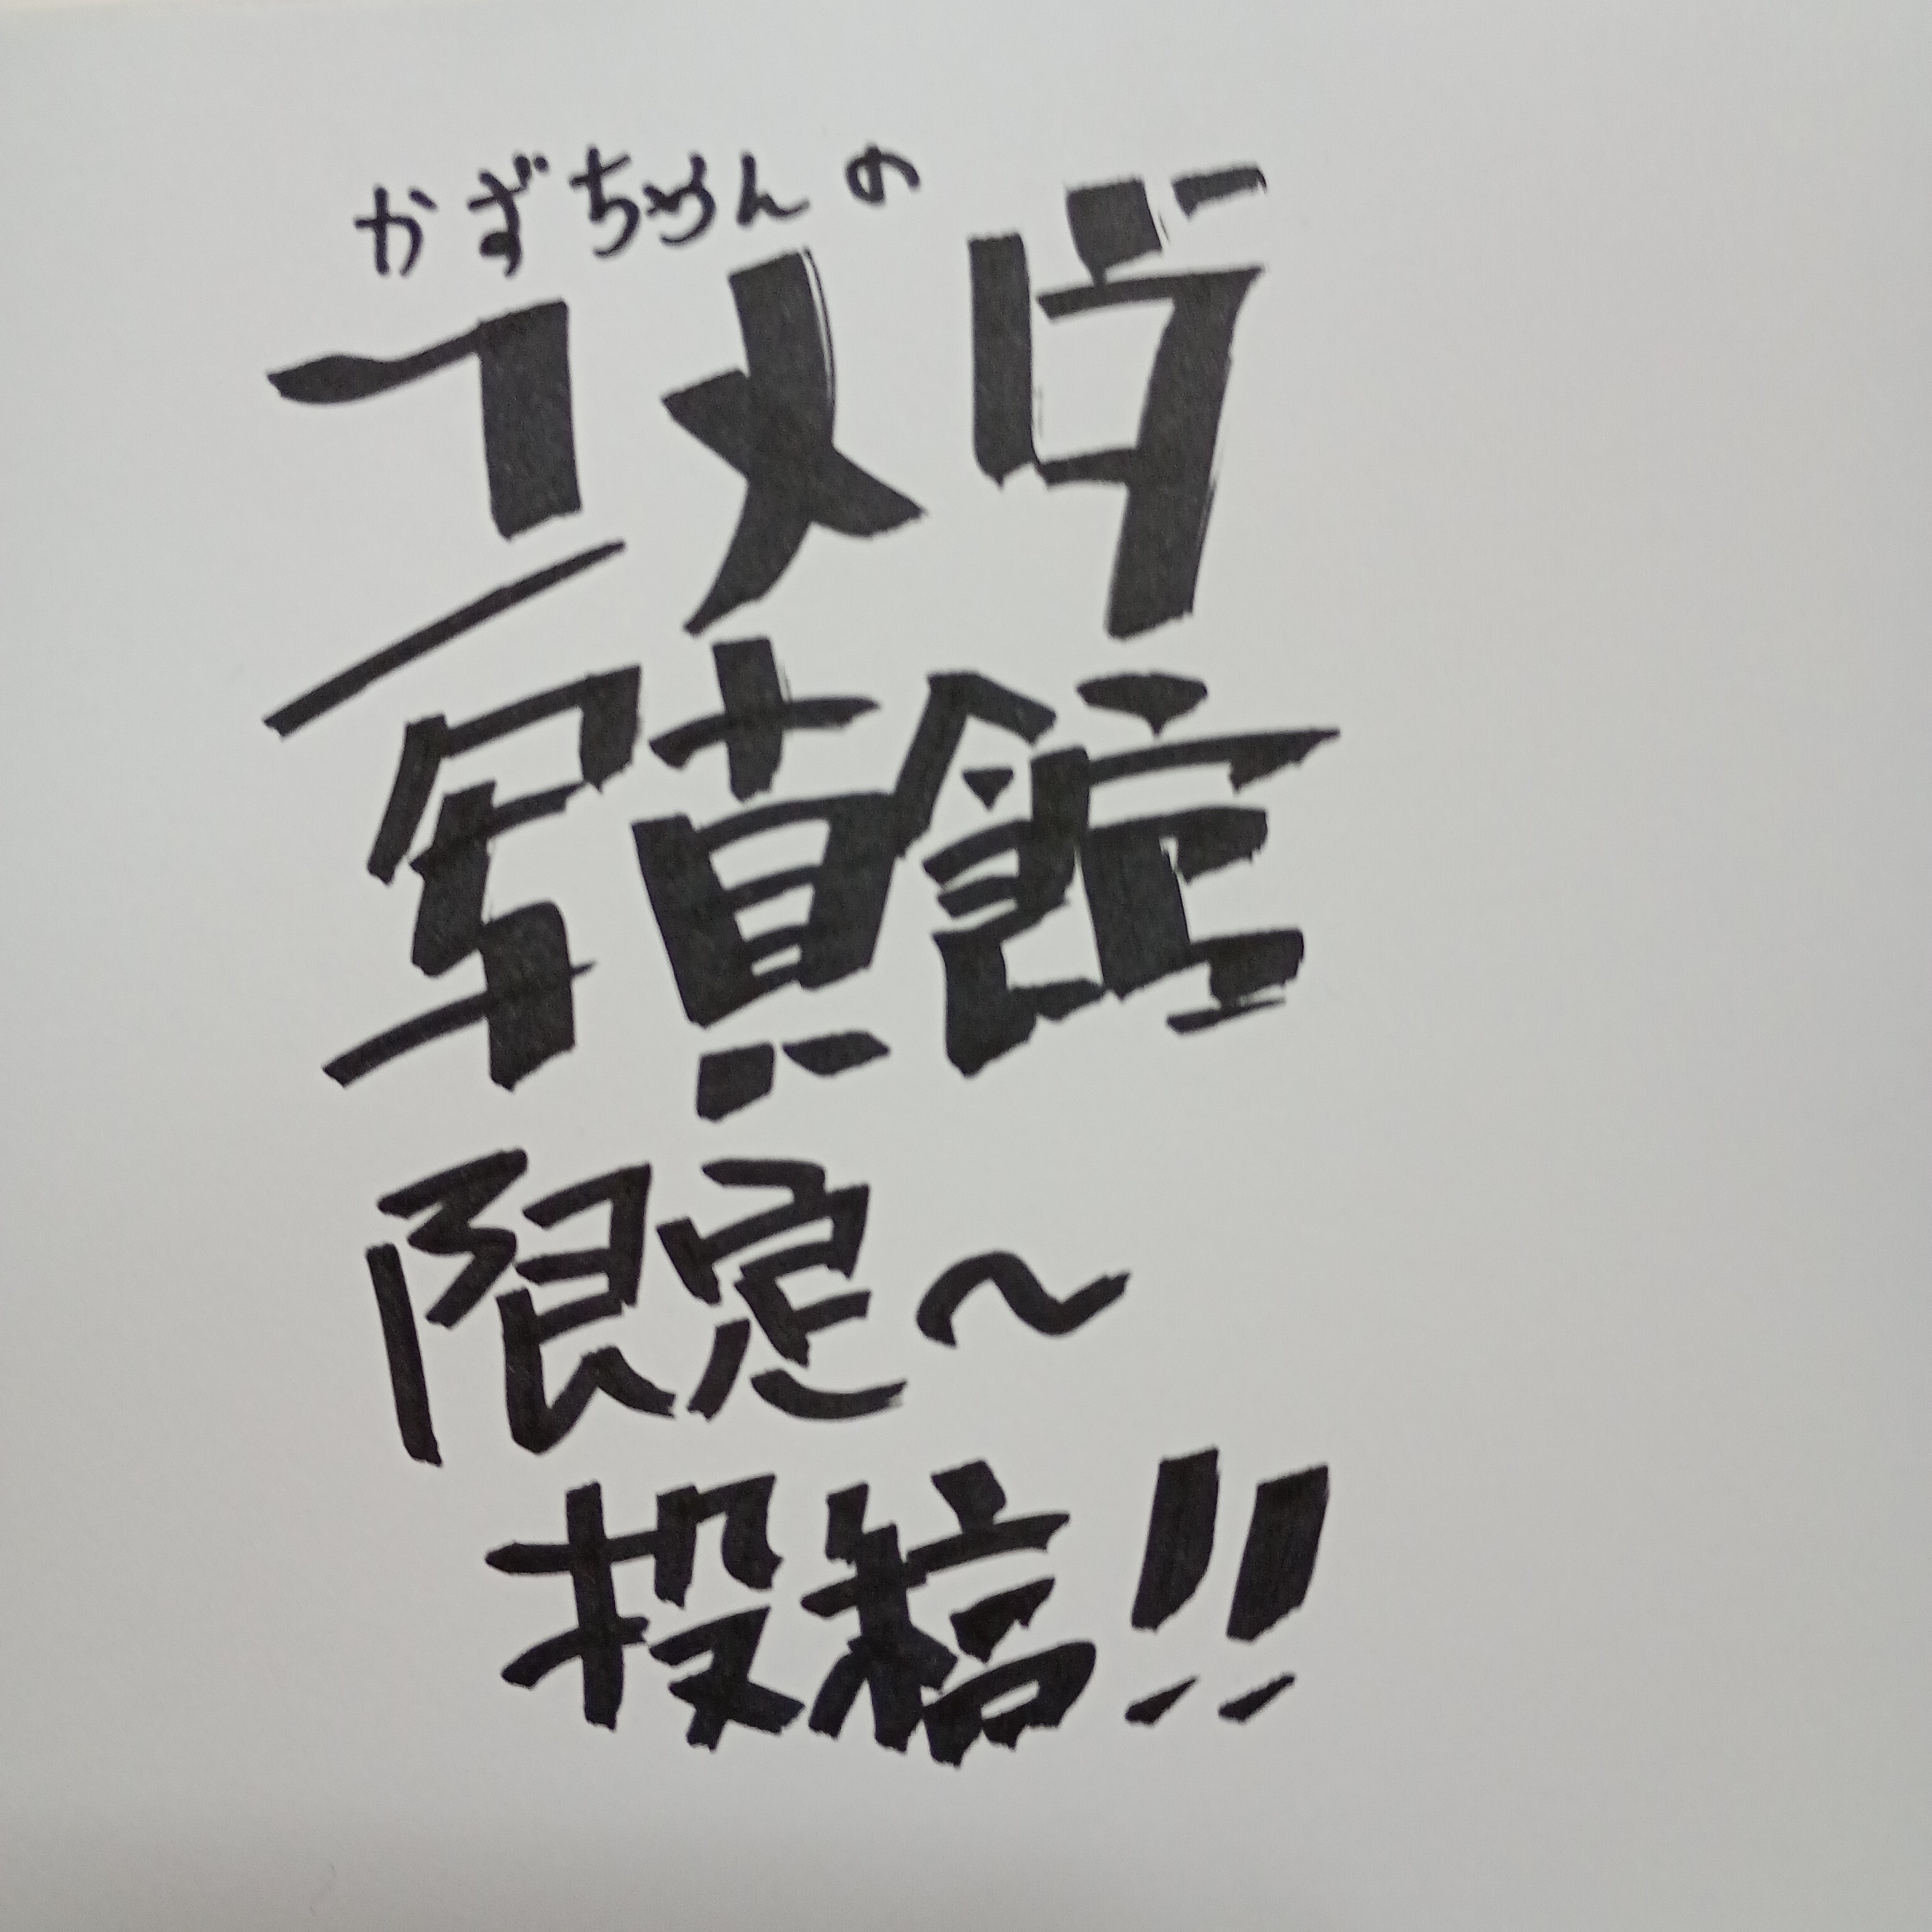 かずちゃんの
コメダ
写真館
限定～
投稿!!